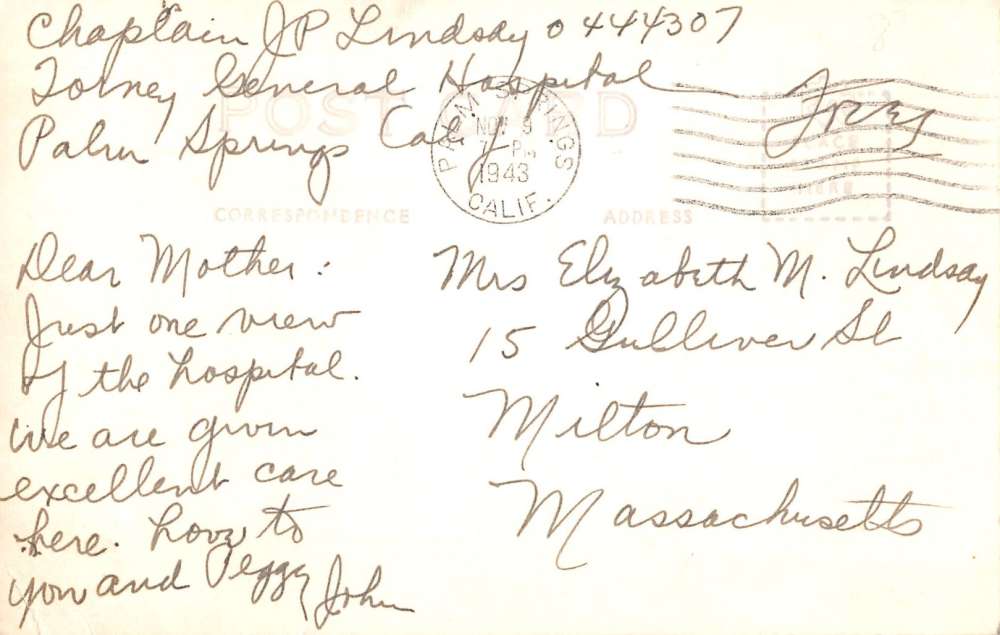 Chaplain JP Lindsay 0444307
Torney General Hospital
Palm Springs Calif
Free
POST CARD
PALM SPRINGS
NOV 9
7 PM
1943
CALIF.
PLACE
HERE
CORRESPONDENCE
ADDRESS
Dear Mother:
Just one view
of the hospital.
We are given
excellent care
here. Love to
you and Peggy
John
Mrs Elizabeth M. Lindsay
15 Gulliver St
Milton
Massachusetts